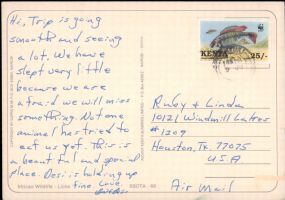 Hi, Trip is going
smooth and seeing
a lot. We have
slept very little
because we are
afraid we will miss
something. Not one
animal has tried to
eat us yet. This is
a beautiful and special
place. Desi is holding up
fine. Love,
African Wildlife - Lions
KENYA
25/-
WWF
Ruby & Linda
10121 Windmill Lakes
#1209
Houston, TX 77075
U.S.A.
Air Mail